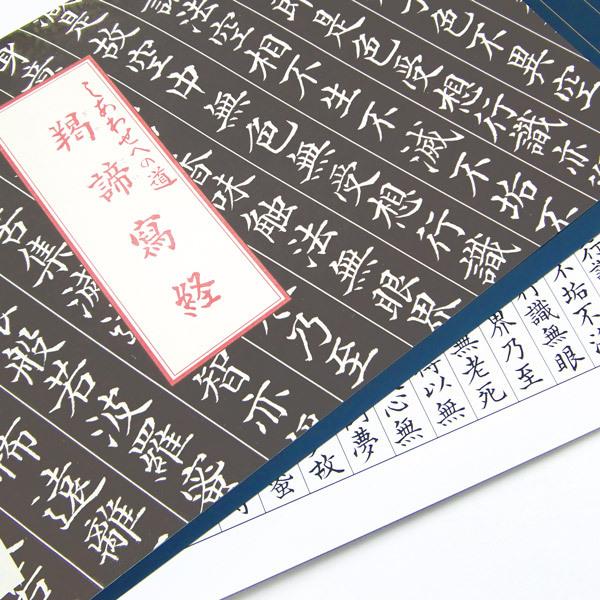 しあわせへの道
羯諦寫経
色不異空
是色受想行識亦
法空相不生不滅不垢不
是故空中無色無受想行識
身意
香味触法無眼界
乃至
苦集滅
智亦
般若波羅蜜
遠離
不垢不
行識無眼
界乃至
無老死
以無
心無
夢
故